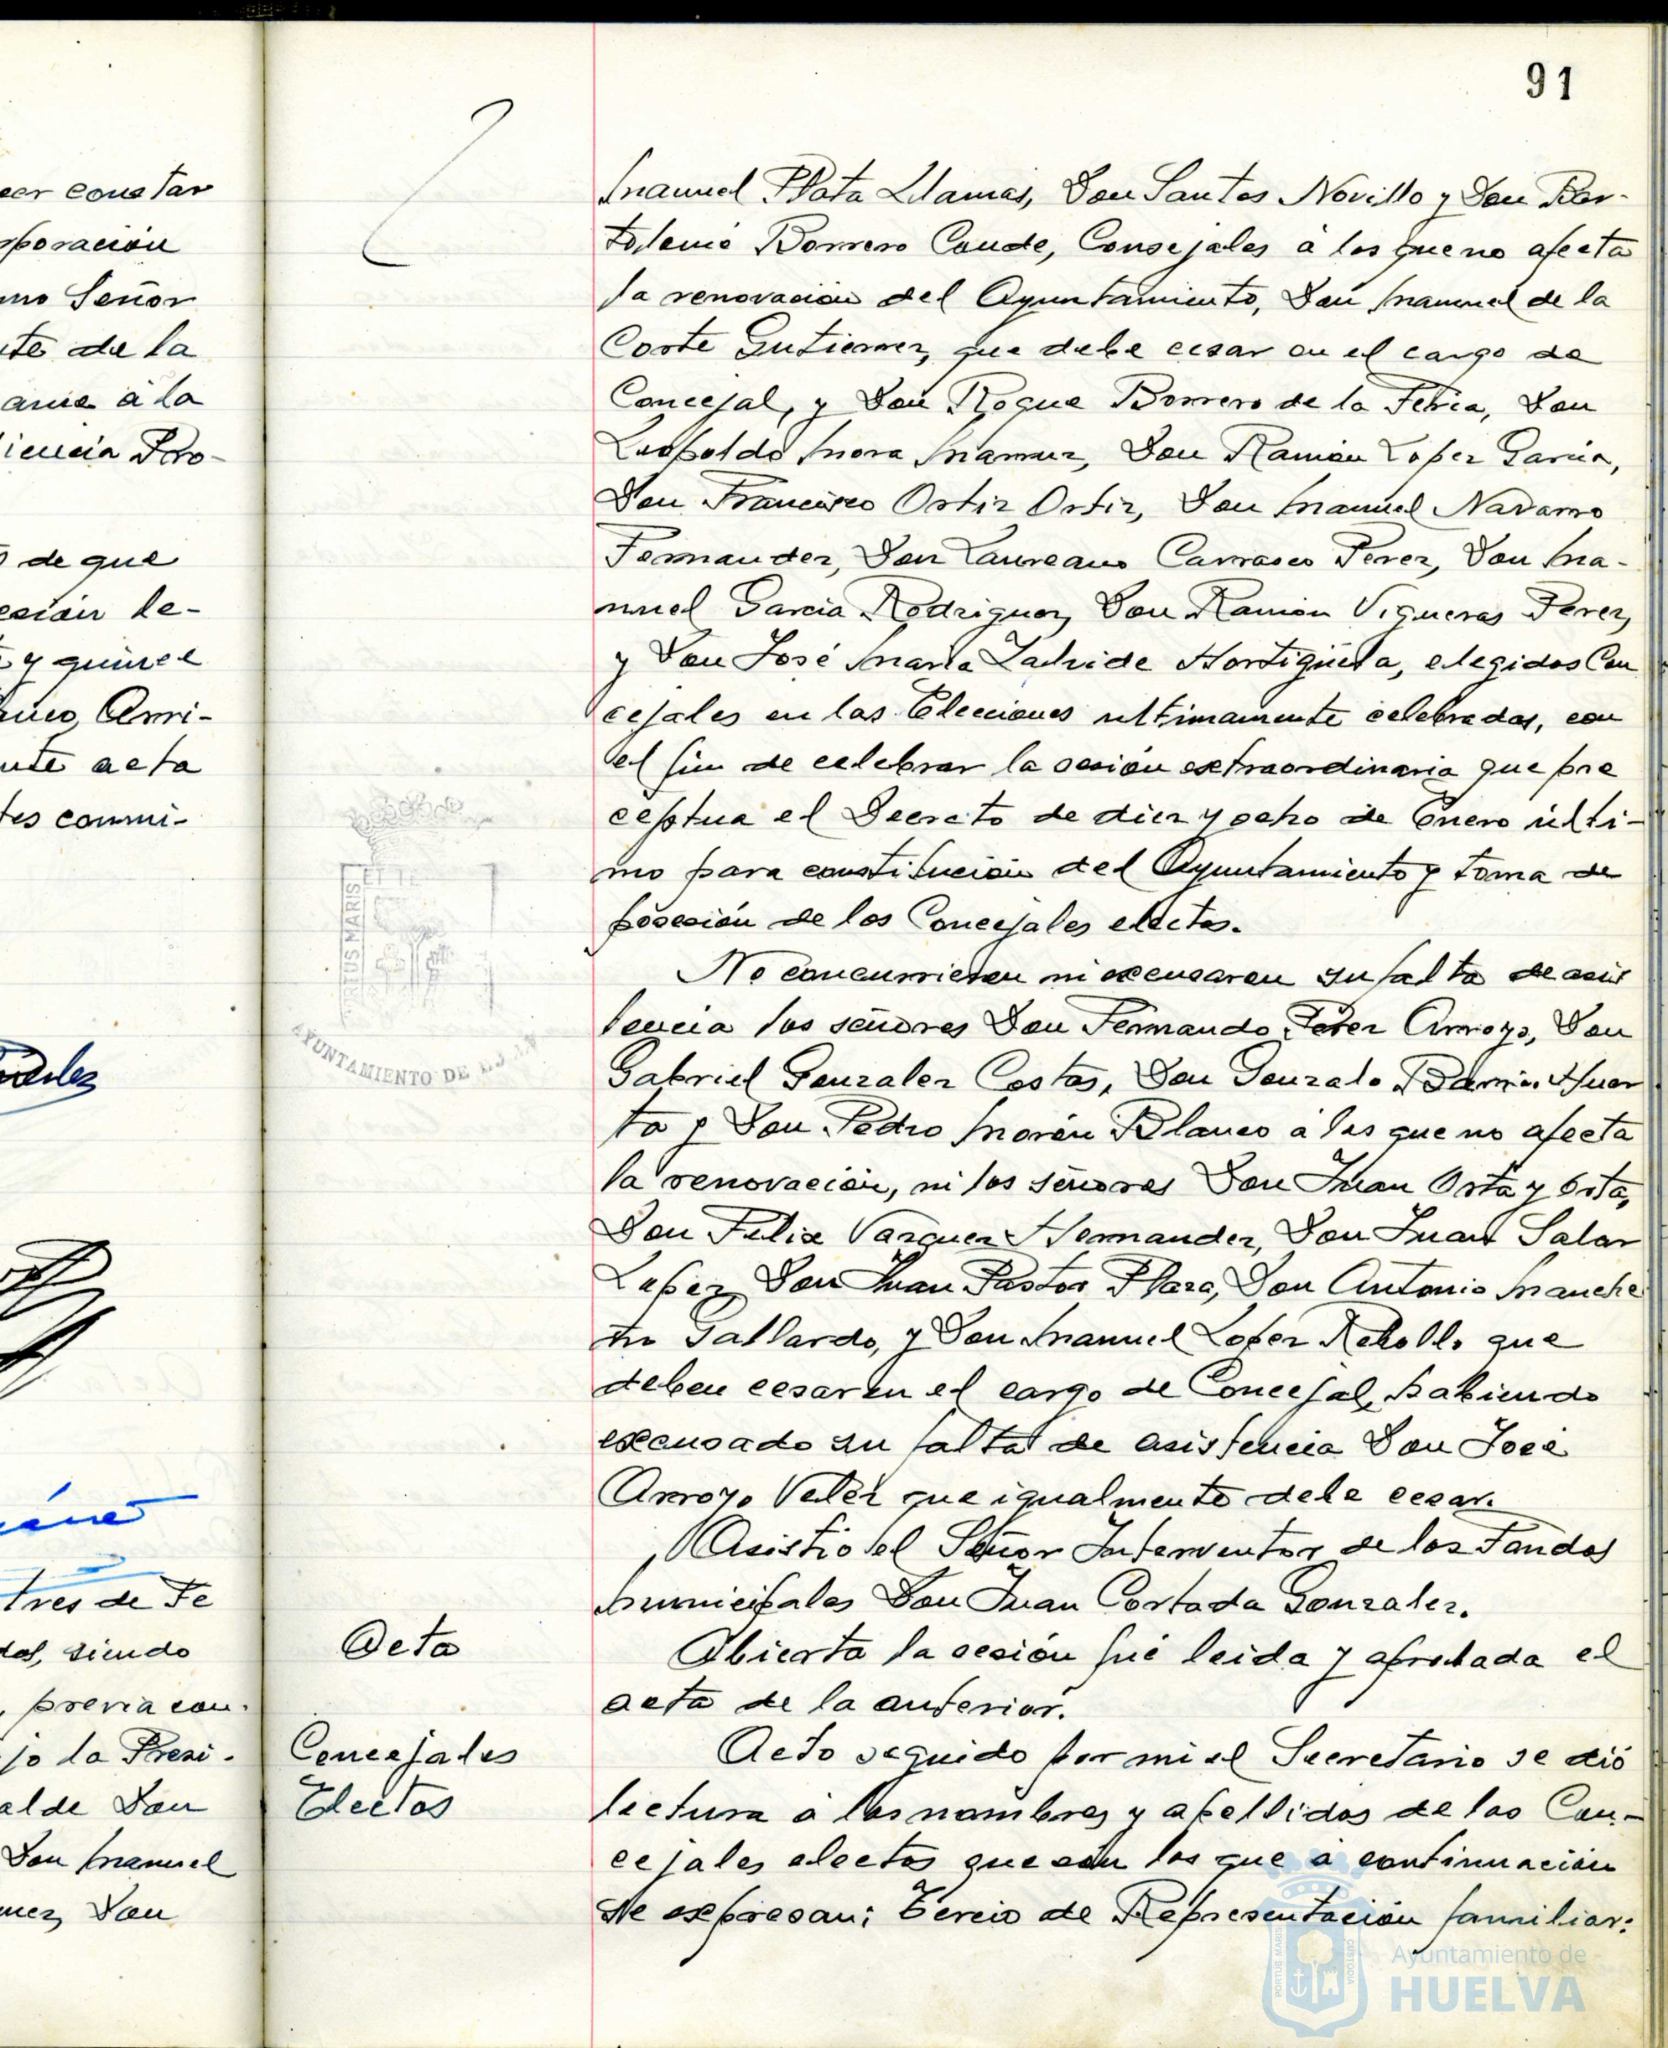 91
eer constar
rporación
mo Señor
te de la
ama á la
iencia Pro-
de que
esión le-
y quince
Arri-
nte acta
tes conmi-
tres de Fe
dos, siendo
previa con-
jo la Presi-
alde Don
Don Manuel
mez, Don
Acta
Concejales
Electos
Manuel Plata Llamas, Don Santos Novillo y Don Bar-
tolomé Borrero Conde, Consejales á los que no afecta
la renovación del Ayuntamiento, Don Manuel de la
Corte Gutierrez, que debe cesar en el cargo de
Concejal, y Don Roque Borrero de la Feria, Don
Leopoldo Mora Don Ramón Lopez Garcia,
Don Francisco Ortiz Ortiz, Don Manuel Navarro
Fernandez, Don Laureano Carrasco Perez, Don Ma-
nuel Garcia Rodriguez, Don Ramón Vigueras Perez,
y Don José Maria Hortigüela, elegidos Con
cejales en las Elecciones ultimamente celebradas, con
el fin de celebrar la sesión extraordinaria que pre
ceptua el Decreto de diez y ocho de Enero ulti-
mo para constitución del Ayuntamiento y toma de
posesión de los Concejales electos.
No concurrieron ni excusaron su falta de asis
tencia los señores Don Fernando Perez Arroyo, Don
Gabriel Gonzalez Costas, Don Gonzalo Barrios Huer
ta y Don Pedro Morón Blanco á los que no afecta
la renovación, ni los señores Don Juan Orta y Orta,
Don Felix Vazquez Hernandez, Don Juan Salar
Lopez, Don Juan Pastor Plaza, Don Antonio Manche
Gallardo, y Don Manuel Lopez Rebollo que
deben cesar en el cargo de Concejal, habiendo
excusado su falta de asistencia Don José
Arroyo Velez que igualmente debe cesar.
Asistio el Señor Interventor de los Fondos
Municipales Don Juan Cortada Gonzalez.
Abierta la sesión fué leida y aprobada el
acta de la anterior.
Acto seguido por mi el Secretario se dió
lectura á los nombres y apellidos de los Con-
cejales electos que son los que á continuación
se expresan: Tercio de Representación familiar:
PORTUS MARIS
AYUNTAMIENTO DE
Ayuntamiento de
HUELVA